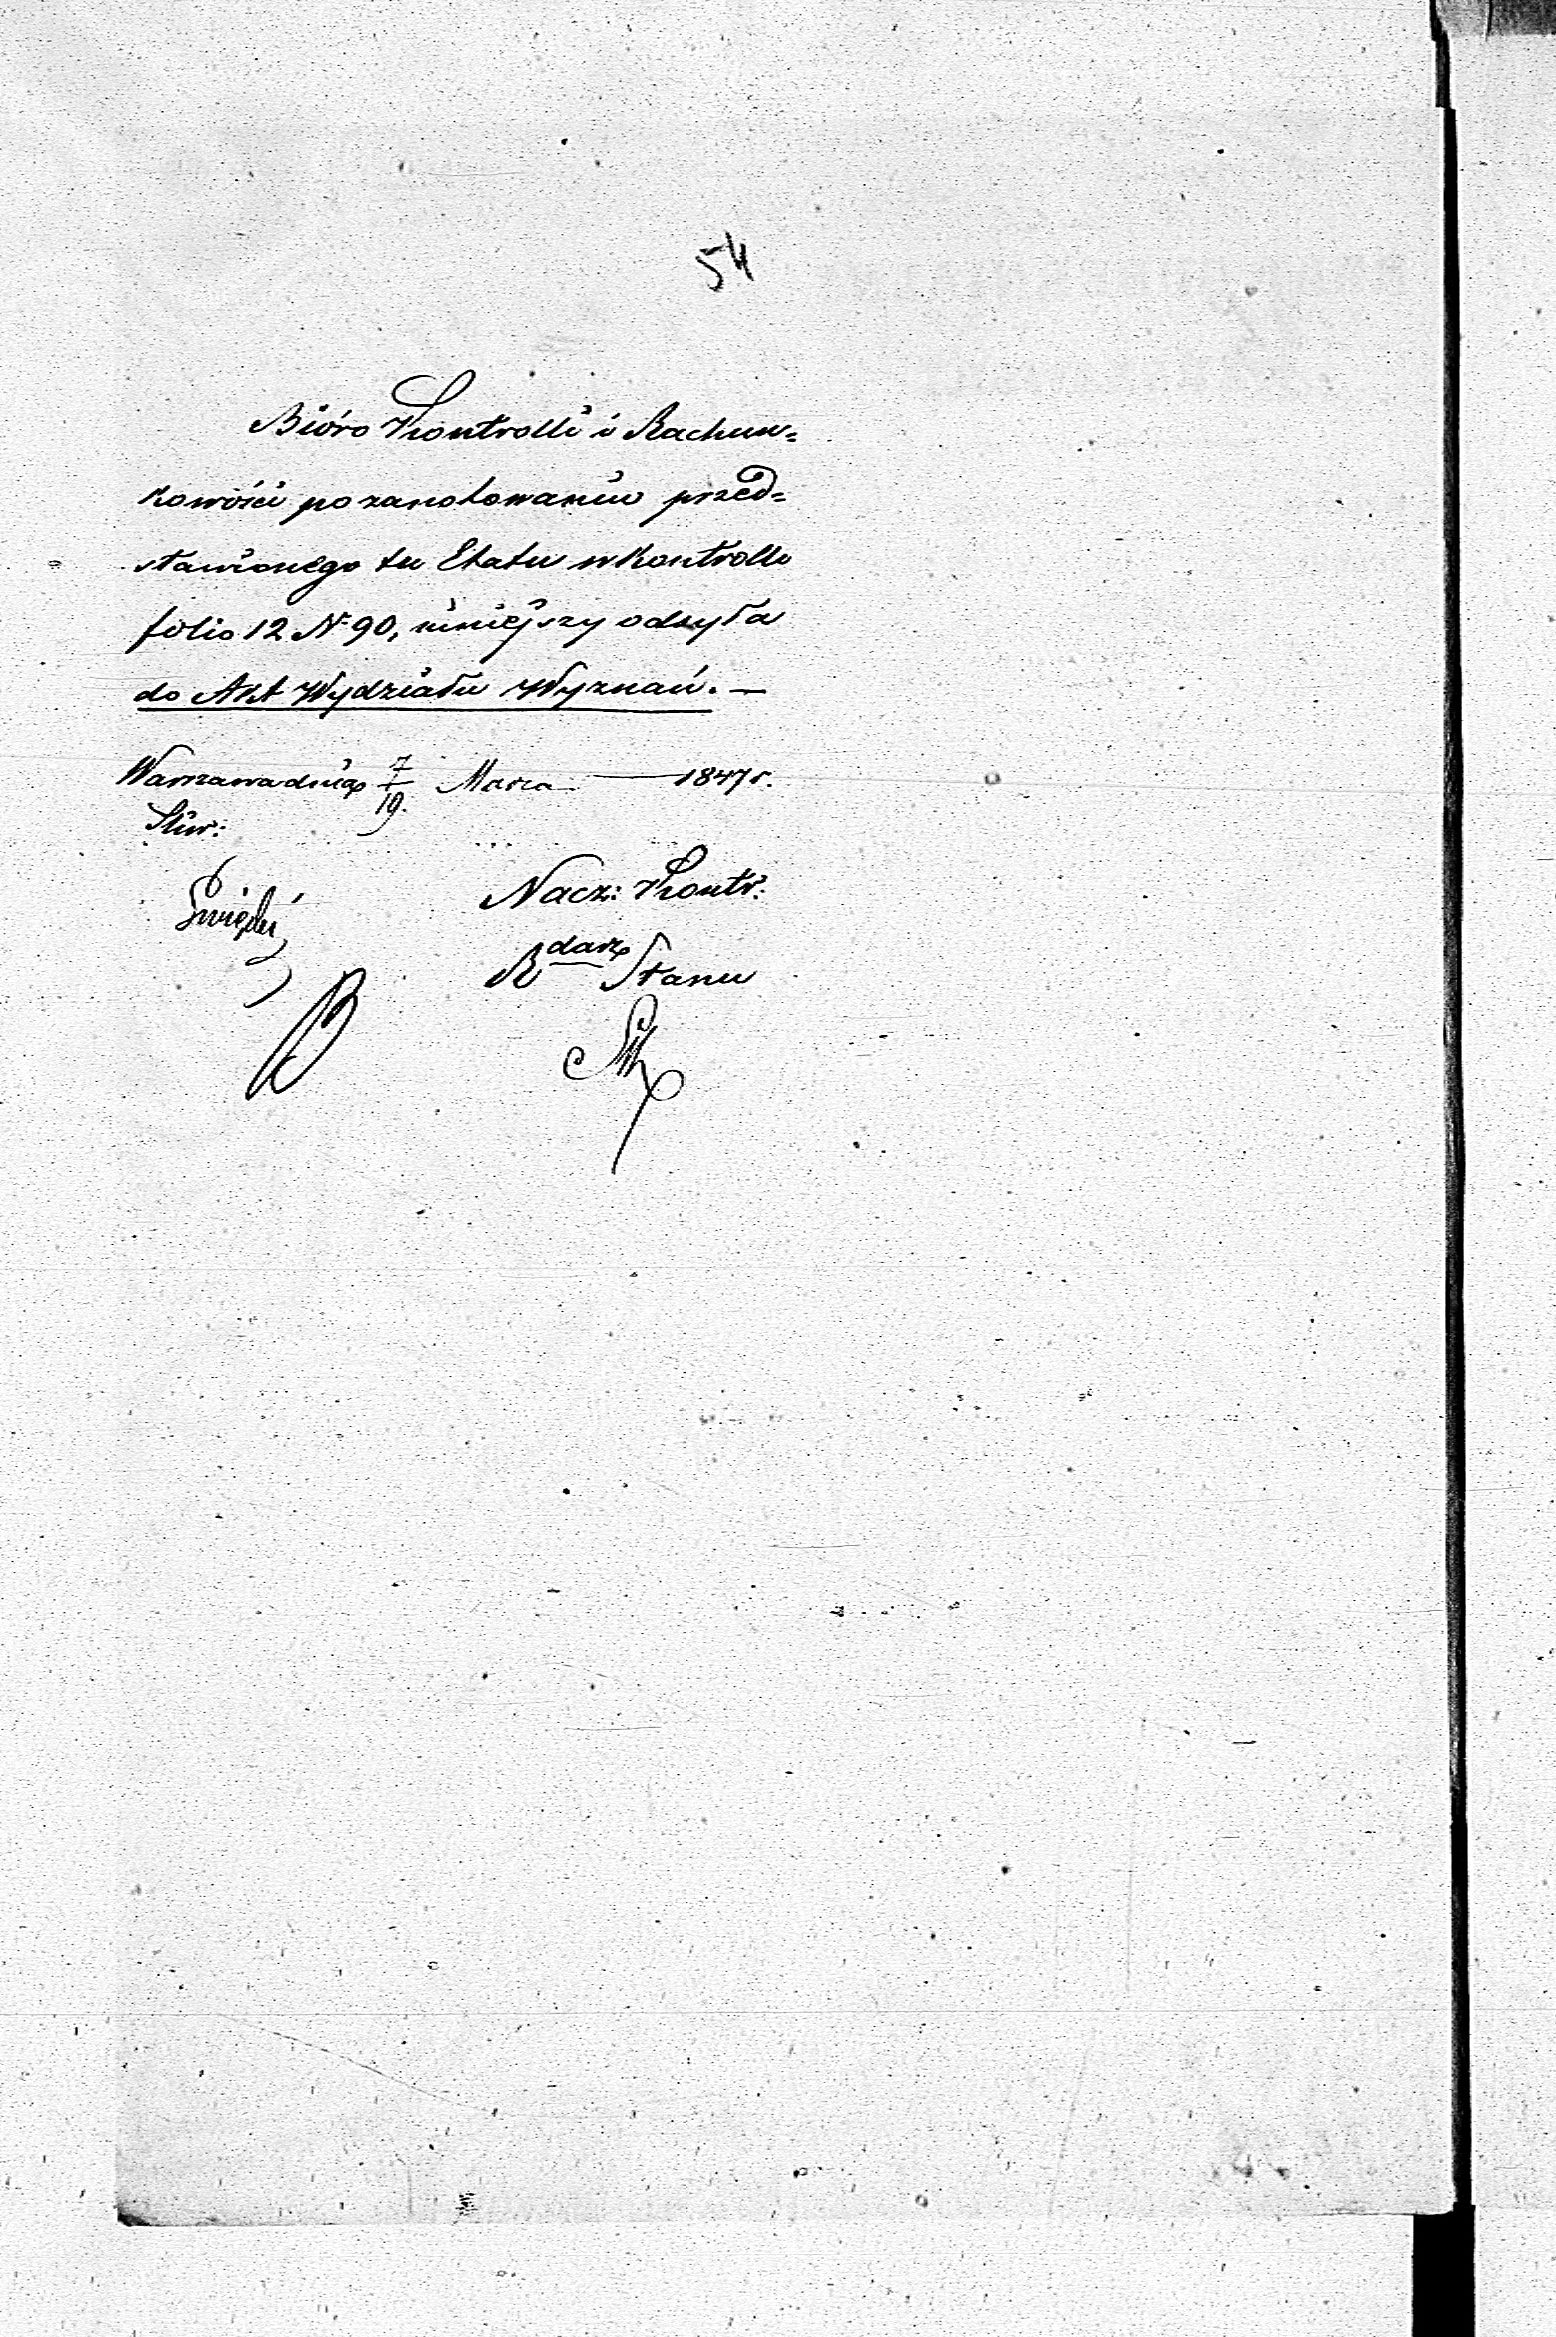 54
Bióro Kontrolli i Rachun=
kowości po zanotowaniu przed=
stawionego tu Etatu w Kontrolli
folio 12 N 90, niniejszy odsyła
do Akt Wydziału Wyznań. —
Warszawa dnia 7/19. Marca — 1847 r.
Nacz: Kontr:
R Stanu